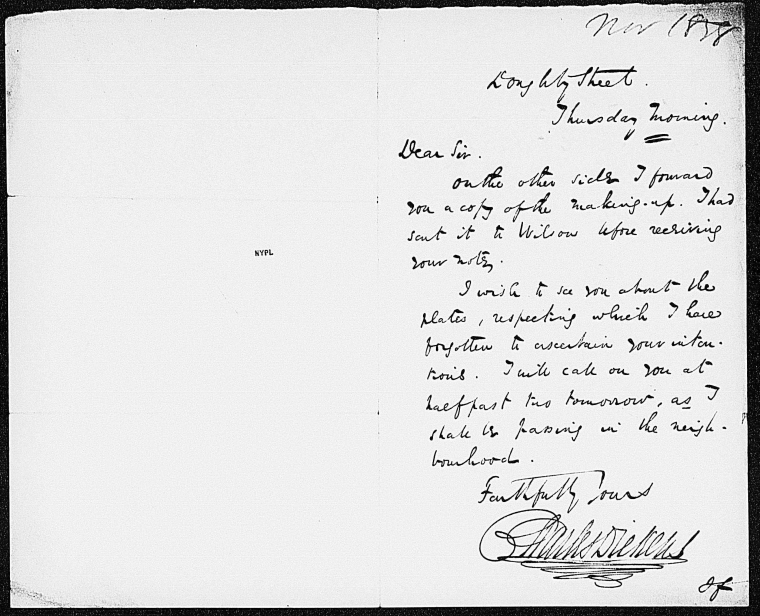 Nov 1838
Doughty Street.
Thursday Morning.
Dear Sir.
On the other side I forward
you a copy of the making-up. I had
sent it to Wilson before receiving
your note.
NYPL
I wish to see you about the
plates, respecting which I have
forgotten to ascertain your inten-
tions. I will call on you at
half past two tomorrow, as I
shall be passing in the neigh-
bourhood.
Faithfully Yours
Charles Dickens